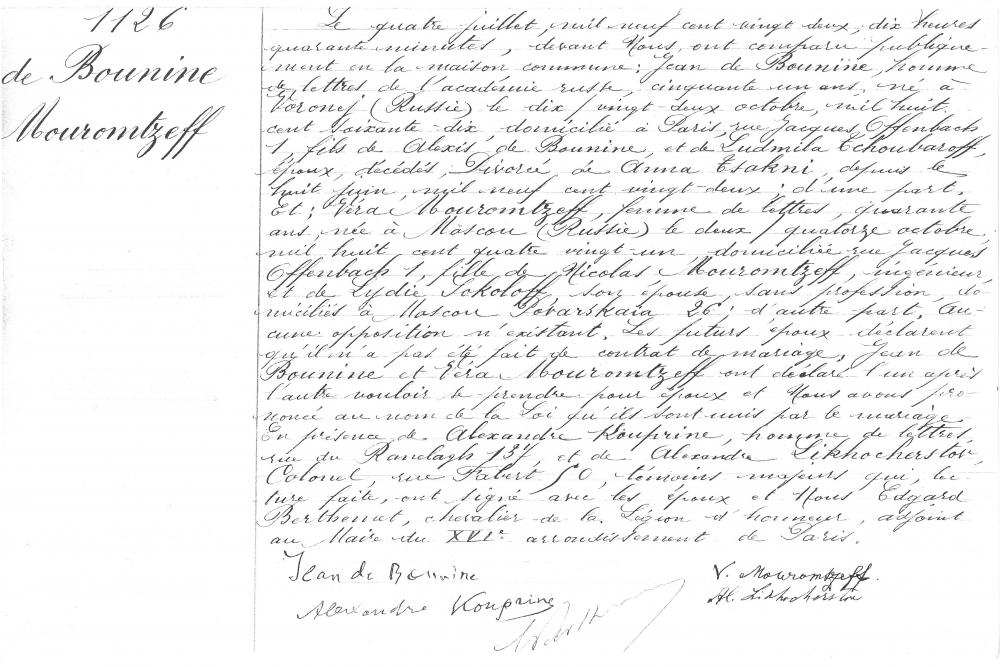 1126
de Bounine
Mouromtzeff
Le quatre juillet, mil neuf cent vingt deux, dix heures
quarante minutes, devant Nous, ont comparu publique-
ment en la maison commune: Jean de Bounine, homme
de lettres de l'académie russe, cinquante un ans, né à
Voronej (Russie) le dix/vingt-deux octobre, mil huit
cent soixante-dix domicilié à Paris, rue Jacques Offenbach
1, fils de Alexis de Bounine, et de Ludmila Tchoubaroff,
époux, décédés, Divorcé de Anna Tsakni, depuis le
huit juin, mil neuf cent vingt-deux; d'une part.
Et; Véra Mouromtzeff, femme de lettres, quarante
ans, née à Moscou (Russie) le deux/quatorze octobre,
mil huit cent quatre vingt-un, domiciliée rue Jacques
Offenbach 1, fille de Nicolas Mouromtzeff, ingénieur,
et de Lydie Sokoloff, son épouse, sans profession, do-
miciliés à Moscou Povarskaïa 26; d'autre part, Au-
cune opposition n'existant. Les futurs époux déclarent
qu'il n'a pas été fait de contrat de mariage, Jean de
Bounine et Véra Mouromtzeff ont déclaré l'un après
l'autre vouloir se prendre pour époux et Nous avons pro-
noncé au nom de la Loi qu'ils sont unis par le mariage.
En présence de Alexandre Kouprine, homme de lettres,
rue du Ranelagh 137, et de Alexandre Likhocherstov,
Colonel, rue Fabert 50, témoins majeurs qui, lec-
ture faite, ont signé avec les époux et Nous Edgard
Berthemet, chevalier de la Légion d'honneur, adjoint
au Maire du XVIe arrondissement de Paris.
Jean de Bounine
V. Mouromtzeff.
Al. Likhocherstov
Alexandre Kouprine